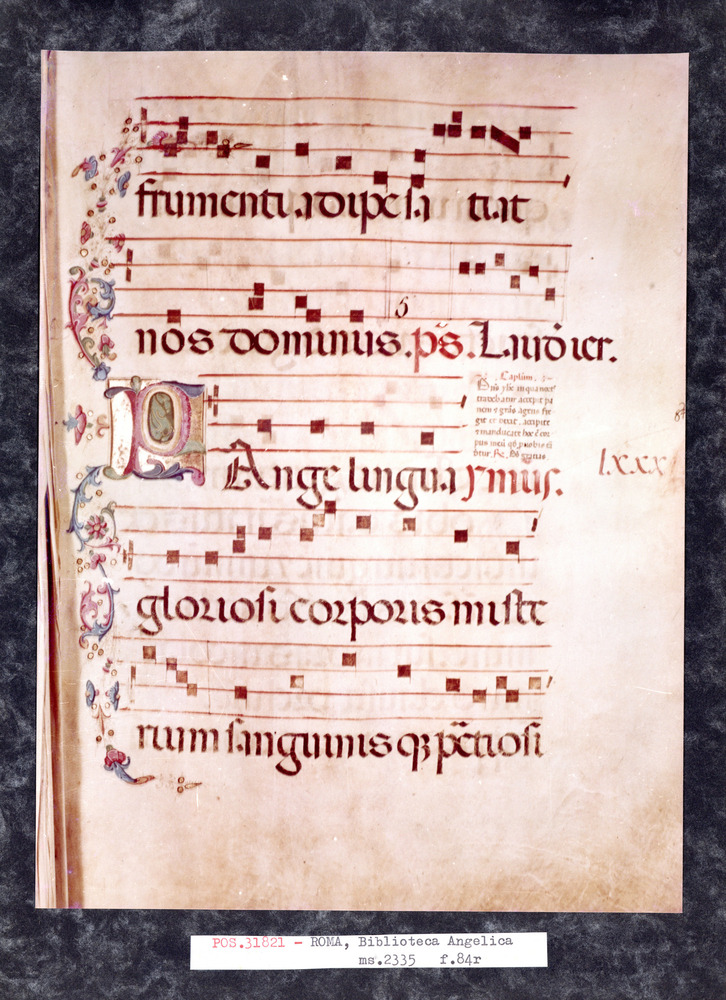 frumenti adipe sa tiat
5
nos dominus. ps. Laudier.
Caplum.
PAnge lingua ymus.
lxxx
gloriosi corporis miste
rium sanguinis qz pctiosi
POS.31821 - ROMA, Biblioteca Angelica
ms.2335 f.84r